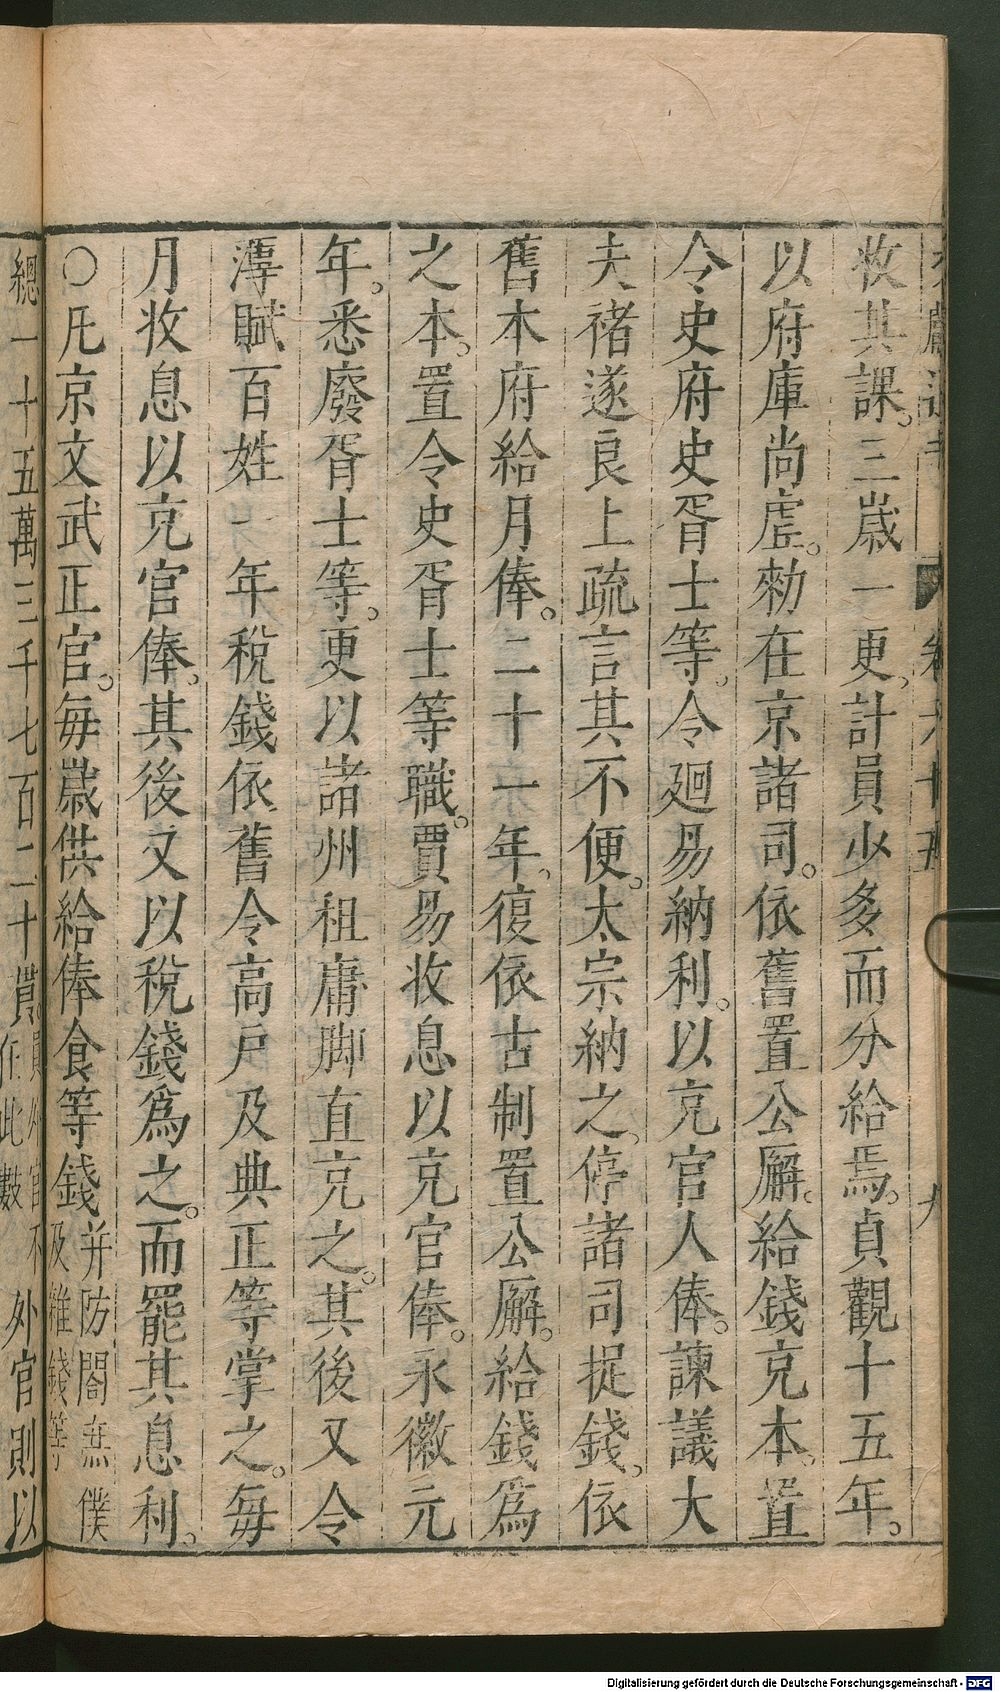 收其課。三歲一更。計員少多而分給焉。貞觀十五年。
以府庫尚虛。勑在京諸司。依舊置公廨。給錢充本。置
令史府史胥士等。令廻易納利。以充官人俸。諫議大
夫褚遂良上疏言其不便。太宗納之。停諸司捉錢。依
舊本府給月俸。二十一年。復依古制置公廨。給錢爲
之本。置令史胥士等職。賈易收息以充官俸。永徽元
年。悉廢胥士等。更以諸州租庸脚直充之。其後又令
薄賦百姓一年稅錢依舊令高戶及典正等掌之。每
月收息以充官俸。其後又以稅錢爲之。而罷其息利。
○凡京文武正官。每歲供給俸食等錢并防閤庶僕
及雜錢等
總一十五萬三千七百二十貫員外官不
在此數外官則以
卷六十五
九
Digitalisierung gefördert durch die Deutsche Forschungsgemeinschaft - DFG